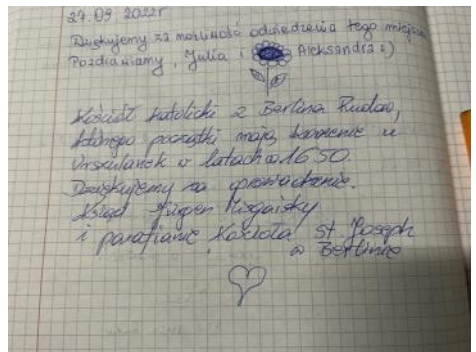 27.09 2022r
Dziękujemy za możliwość odwiedzenia tego miejsca
Pozdrawiamy, Julia i Aleksandra :)
Kościół katolicki z Berlina Rudow,
którego początki mają korzenie u
Urszulanek w latach 1650.
Dziękujemy za oprowadzenie.
Ksiądz Jürgen
i parafianie Kościoła St Joseph
w Berlinie